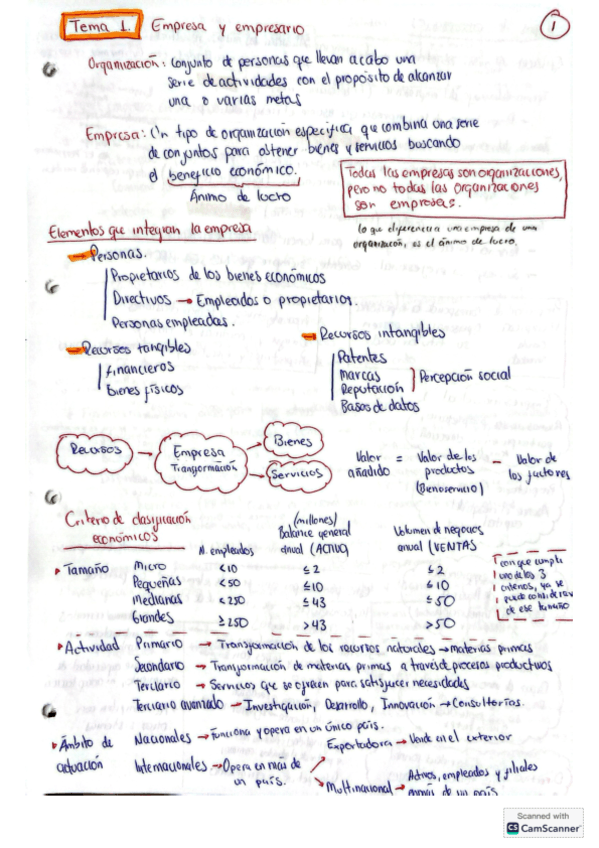 Tema 1. Empresa y empresario
1
Organización: Conjunto de personas que llevan a cabo una
serie de actividades con el propósito de alcanzar
una o varias metas
Empresa: Un tipo de organización específica, que combina una serie
de conjuntos para obtener bienes y servicios buscando
el beneficio económico.
Ánimo de lucro
Todas las empresas son organizaciones,
pero no todas las organizaciones
son empresas.
lo que diferencia una empresa de una
organización, es el ánimo de lucro.
Elementos que integran la empresa
Personas.
Propietarios de los bienes económicos
Directivos → Empleados o propietarios.
Personas empleadas.
Recursos tangibles
Financieros
Bienes físicos
Recursos intangibles
Patentes
Marcas
Reputación
Percepción social
Bases de datos
Recursos → Empresa Transformación
Bienes
Servicios
Valor añadido = Valor de los productos (Bien o servicio) − Valor de los factores
Criterio de clasificación
económicos
N. empleados
(millones)
Balance general
anual (ACTIVO)
Volumen de negocios
anual (VENTAS
Tamaño
Micro <10 ≤2 ≤2
Pequeñas <50 ≤10 ≤10
Medianas <250 ≤43 ≤50
Grandes ≥250 >43 >50
con que cumpla
uno de los 3
criterios, ya se
puede considerar
de ese tamaño
Actividad Primario → Transformación de los recursos naturales → materias primas
Secundario → Transformación de materias primas a través de procesos productivos
Terciario → Servicios que se ofrecen para satisfacer necesidades
Terciario avanzado → Investigación, Desarrollo, Innovación → Consultorías.
Ámbito de
actuación
Nacionales → Funciona y opera en un único país.
Internacionales → Opera en más de
un país.
Exportadora → Vende en el exterior
Multinacional → Activos, empleados y filiales
en más de un país
Scanned with
CS CamScanner